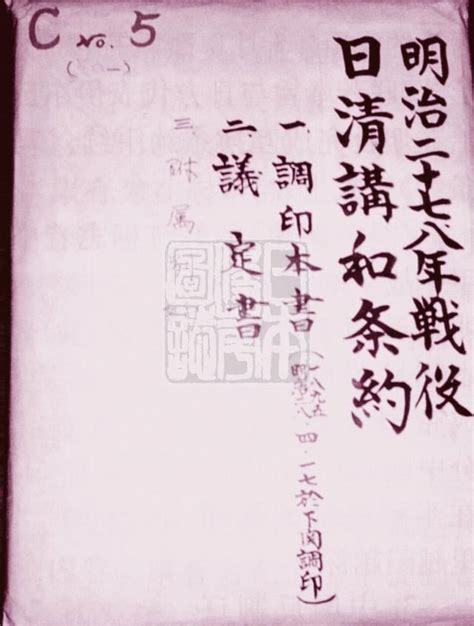 C No. 5
(その一)
明治二十七八年戦役
日清講和条約
一、調印本書(一八九五 明二八・四・一七於下関調印)
二、議定書
三、附属